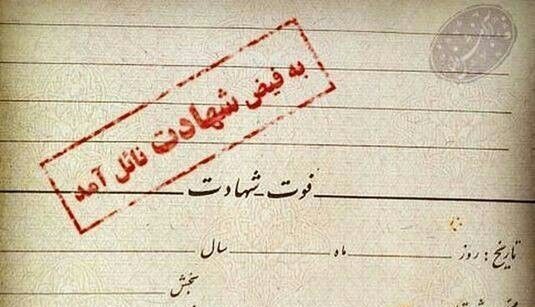 به فیض شهادت نائل آمد
فوت - شهادت
تاریخ: روز ماه سال
بخش